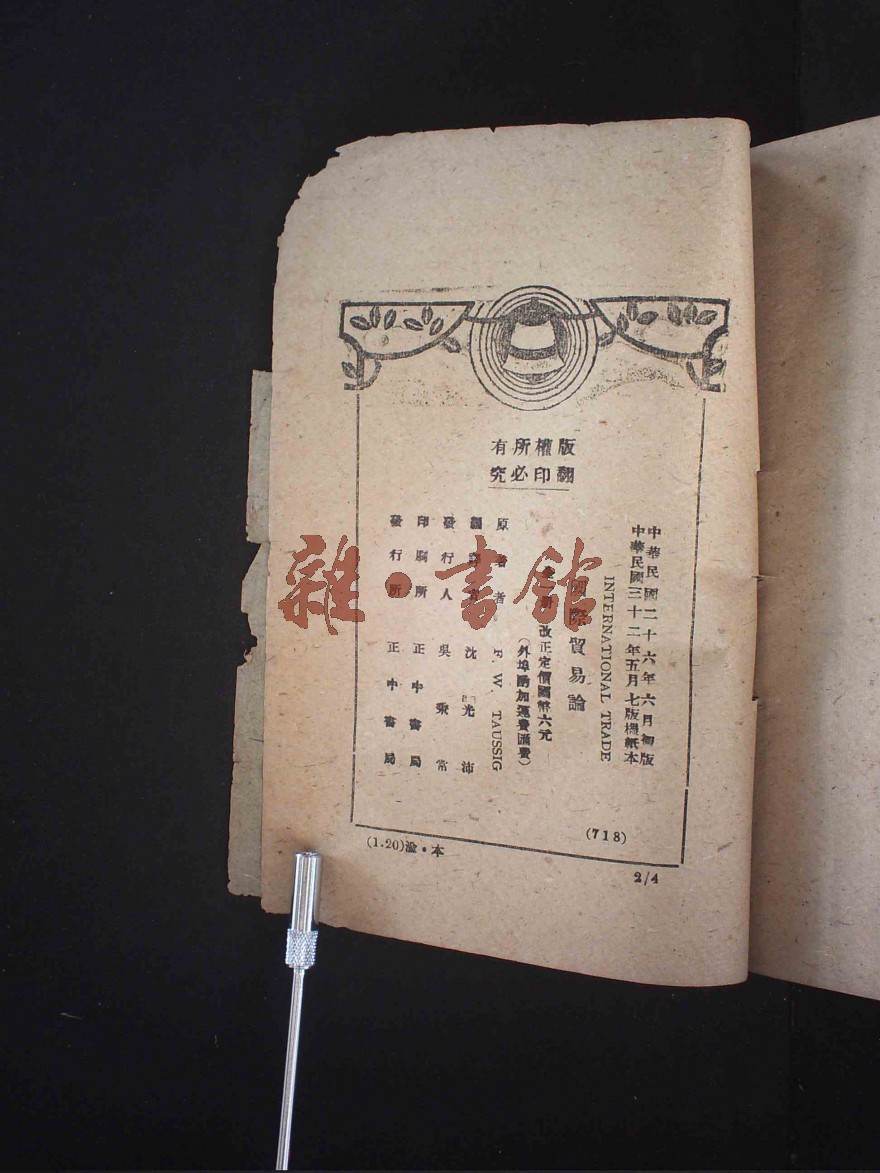 版權所有
翻印必究
中華民國二十六年六月初版
中華民國三十二年五月七版機紙本
INTERNATIONAL TRADE
國際貿易論
全一冊 改正定價國幣六元
(外埠酌加運費匯費)
原著者 F. W. TAUSSIG
編譯者 沈光沛
發行人 吳秉常
印刷所 正中書局
發行所 正中書局
(718)
(1.20)渝·本
2/4
雜·書館